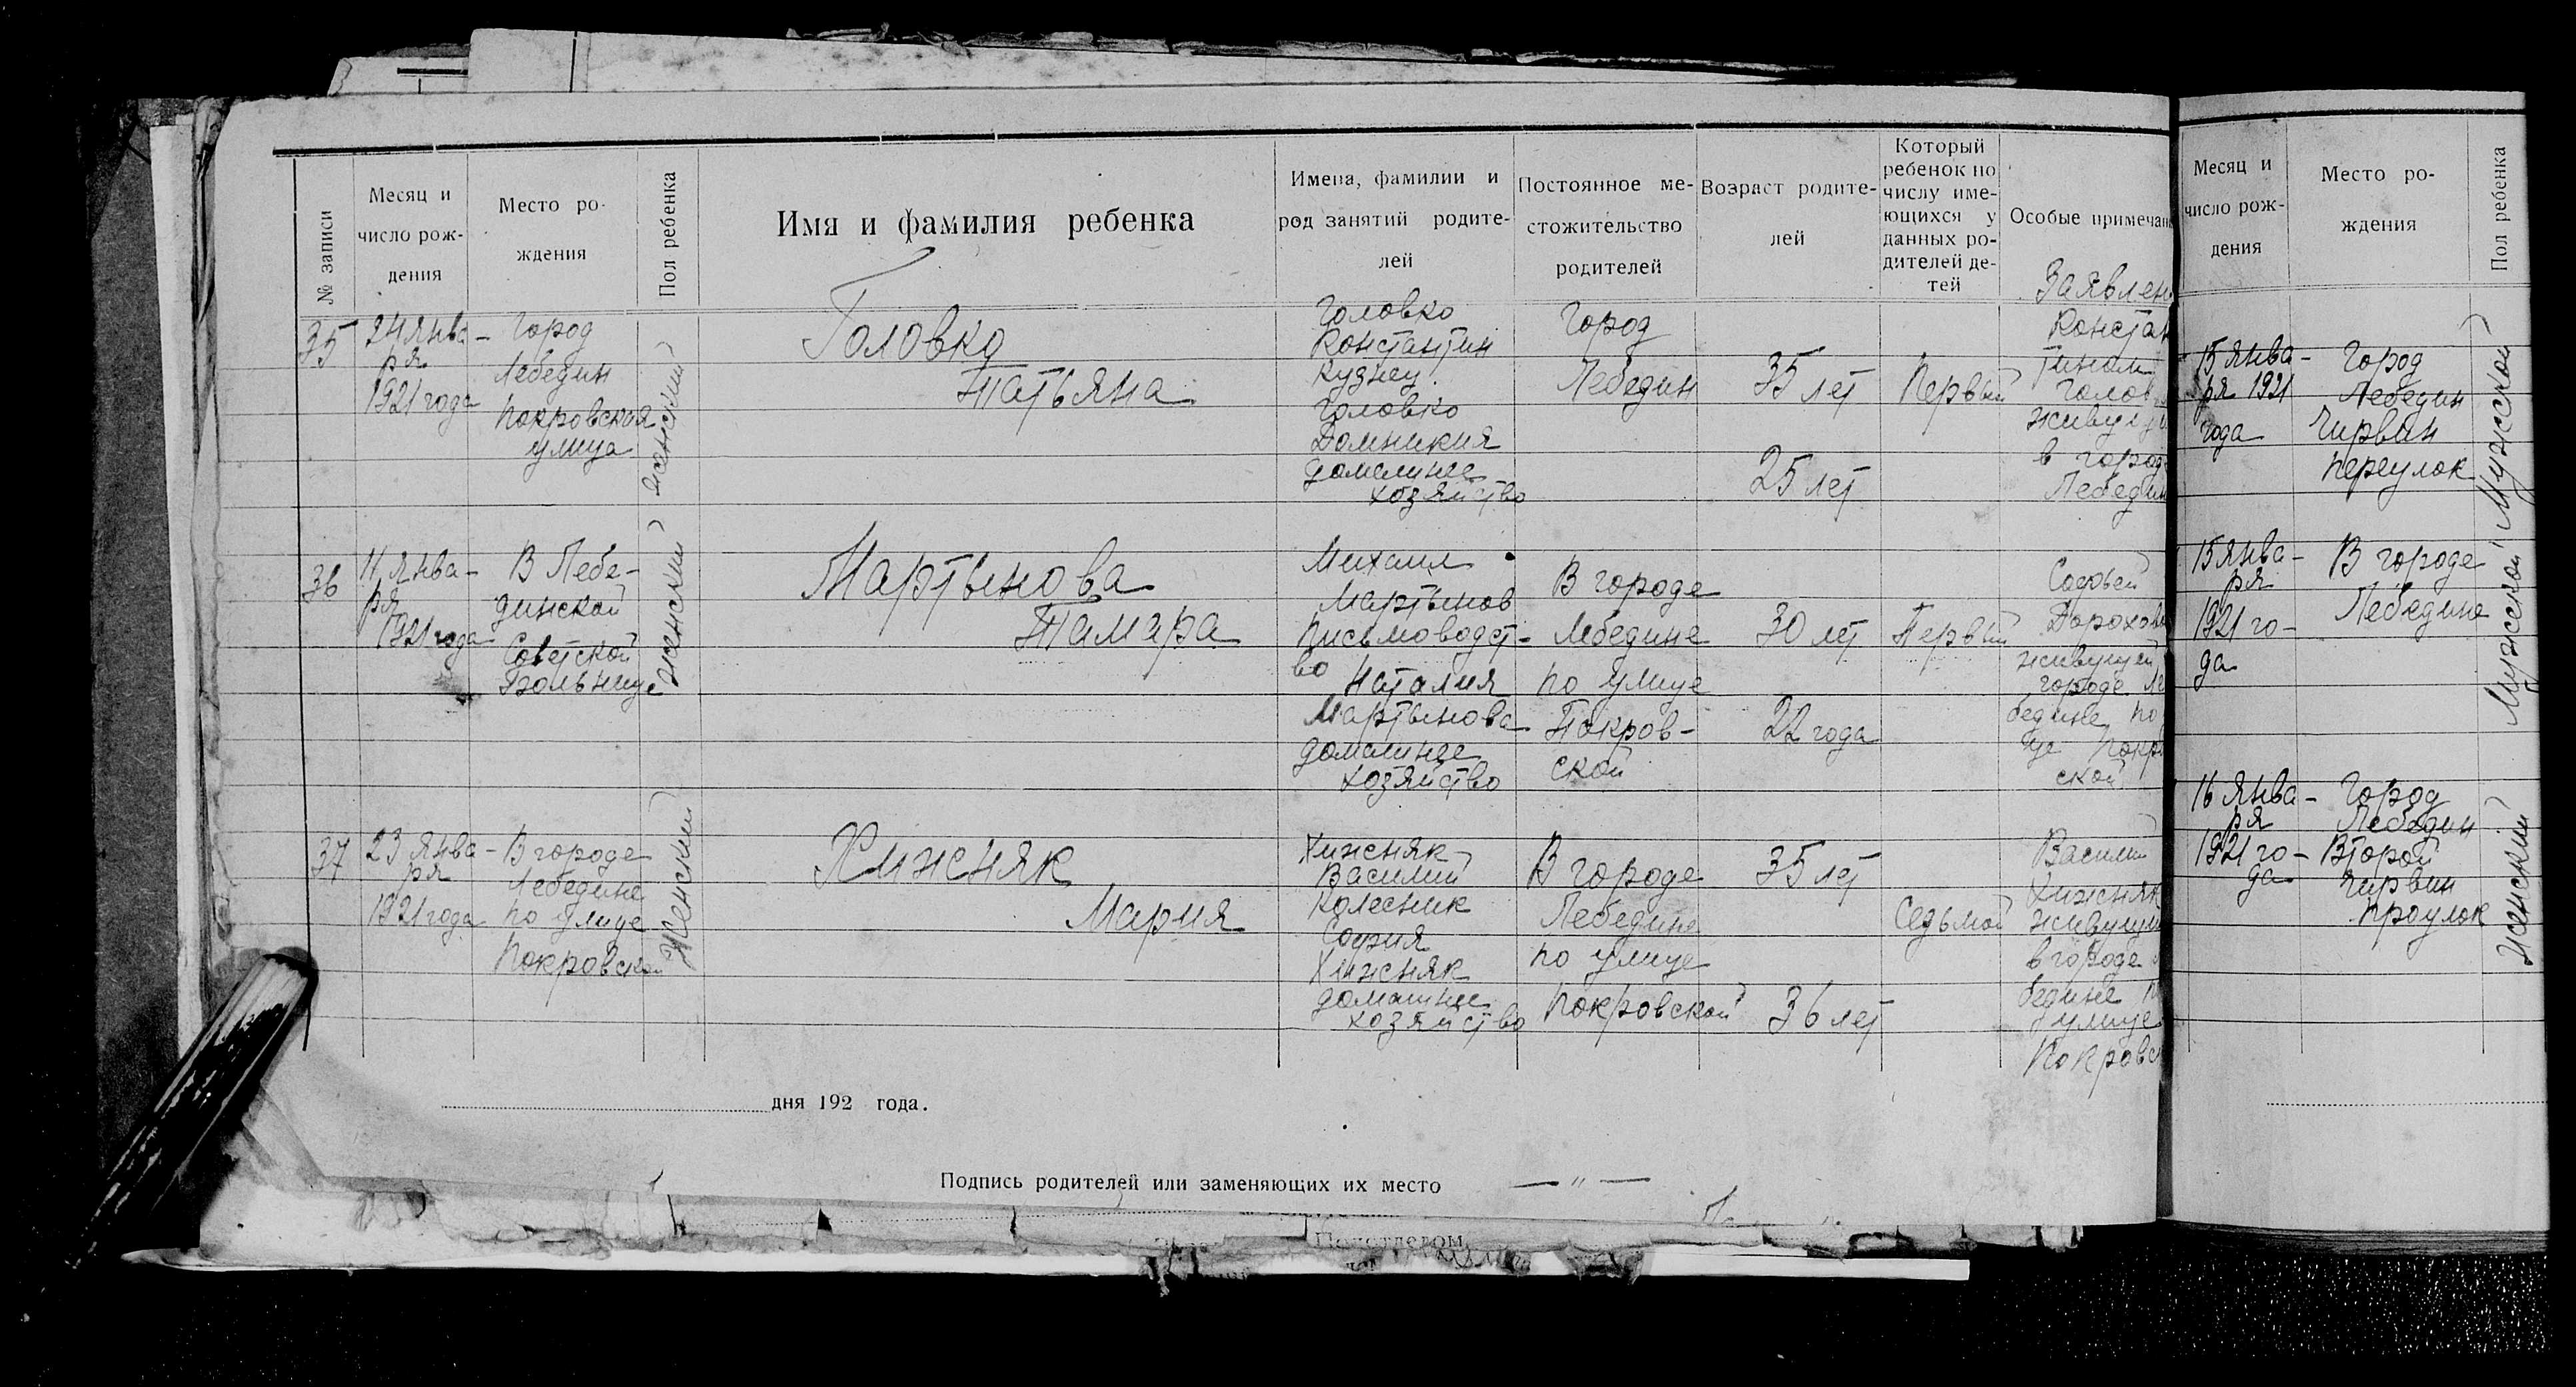 № записи
Месяц и
число рож-
дения
Место ро-
ждения
Пол ребенка
Имя и фамилия ребенка
Имена, фамилии и
род занятий родите-
лей
Постоянное ме-
стожительство
родителей
Возраст родите-
лей
Который
ребенок по
числу име-
ющихся у
данных ро-
дителей де-
тей
Особые примечан
35
24 янва-
ря
1921 года
Город
Лебедин
Покровская
улица
женский
Головко
Татьяна
Головко
Константин
Кузнец.
Головко
Домникия
домашнее
хозяйство
Город
Лебедин
35 лет
25 лет
Первый
Заявлен
Констан
тином
Голов
живущи
в город
Лебедин
36
11 янва-
ря
1921 года
В Лебе-
динской
Советской
Больнице
женский
Мартынова
Тамара
Михаил
Мартынов
Письмоводст-
во
Наталия
Мартынова
домашнее
хозяйство
В городе
Лебедине
по улице
Покров-
ской
30 лет
22 года
Первый
Софьей
Дорохов
живущей
городе Ле
бедине по
це Покр
ской
37
23 янва-
ря
1921 года
В городе
Лебедине
по улице
Покровской
Женский
Хижняк
Мария
Хижняк
Василий
Колесник
София
Хижняк
домашнее
хозяйство
В городе
Лебедине
по улице
Покровской
35 лет
36 лет
Седьмой
Василий
Хижняк
живущий
в городе
бедине
улице
Покровс
дня 192 года.
Подпись родителей или заменяющих их место — " —
Подотделом
Месяц и
число рож-
дения
Место ро-
ждения
Пол ребенка
15 янва-
ря 1921
года
Город
Лебедин
Чирвин
переулок
Мужской
15 янва-
ря
1921 го-
да
В городе
Лебедине
Мужской
16 янва-
ря
1921 го-
да
Город
Лебедин
Второй
Чирвин
проулок
женский